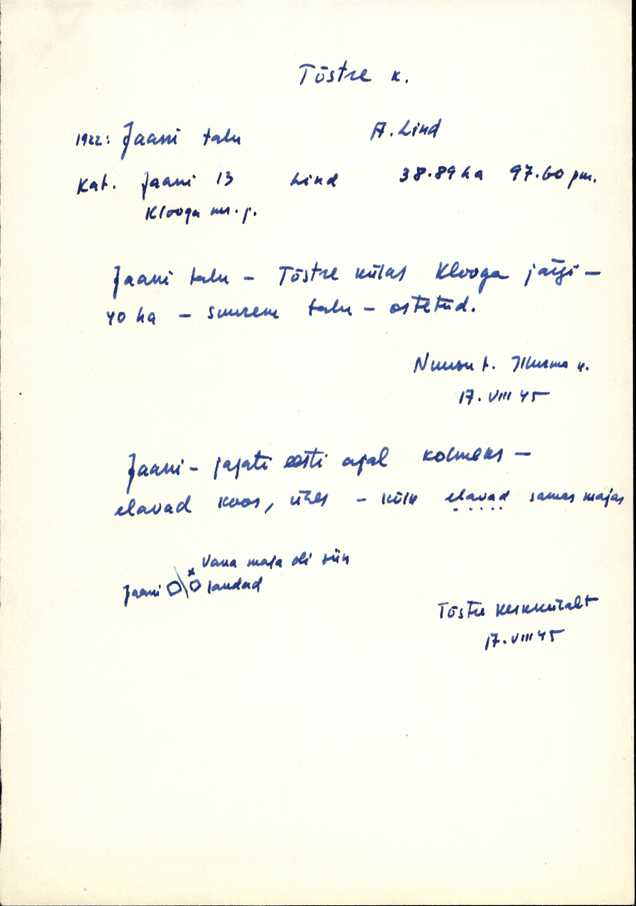 Tõstre k.
1922: Jaani talu A. Lind
Kat. Jaani 13 Lind 38.89 ha 97.60 pm.
Klooga mr. j.
Jaani talu – Tõstre külas Klooga järgi –
40 ha – suurem talu – ostetud.
t. k.
17. VIII 45
Jaani – jagati eesti ajal kolmeks –
elavad koos, ühes – külas elavad samas majas
Vana maja oli siin
Jaani laudad
Tõstre keskkülalt
17. VIII 45